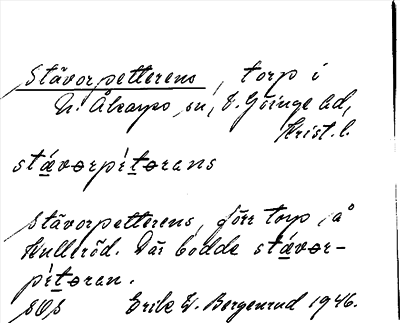 Stävorpetterens, torp i
N. Åkarps sn, V. Göinge hd,
Krist. l.
stävərpitərans
Stävorpetterens, förr torp på
Hulleröd. Där bodde stävər-
pitəran.
SOS Erik W. Bergenrud 1946.